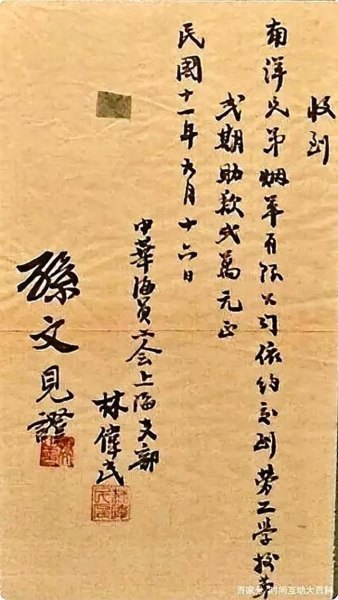 收到
南洋兄弟烟草有限公司依约交到劳工学校第
弍期助款弍萬元正
民國十一年九月十六日
中華海員工会上海支部
林偉民
孫文見證
百家号/时间互动大百科